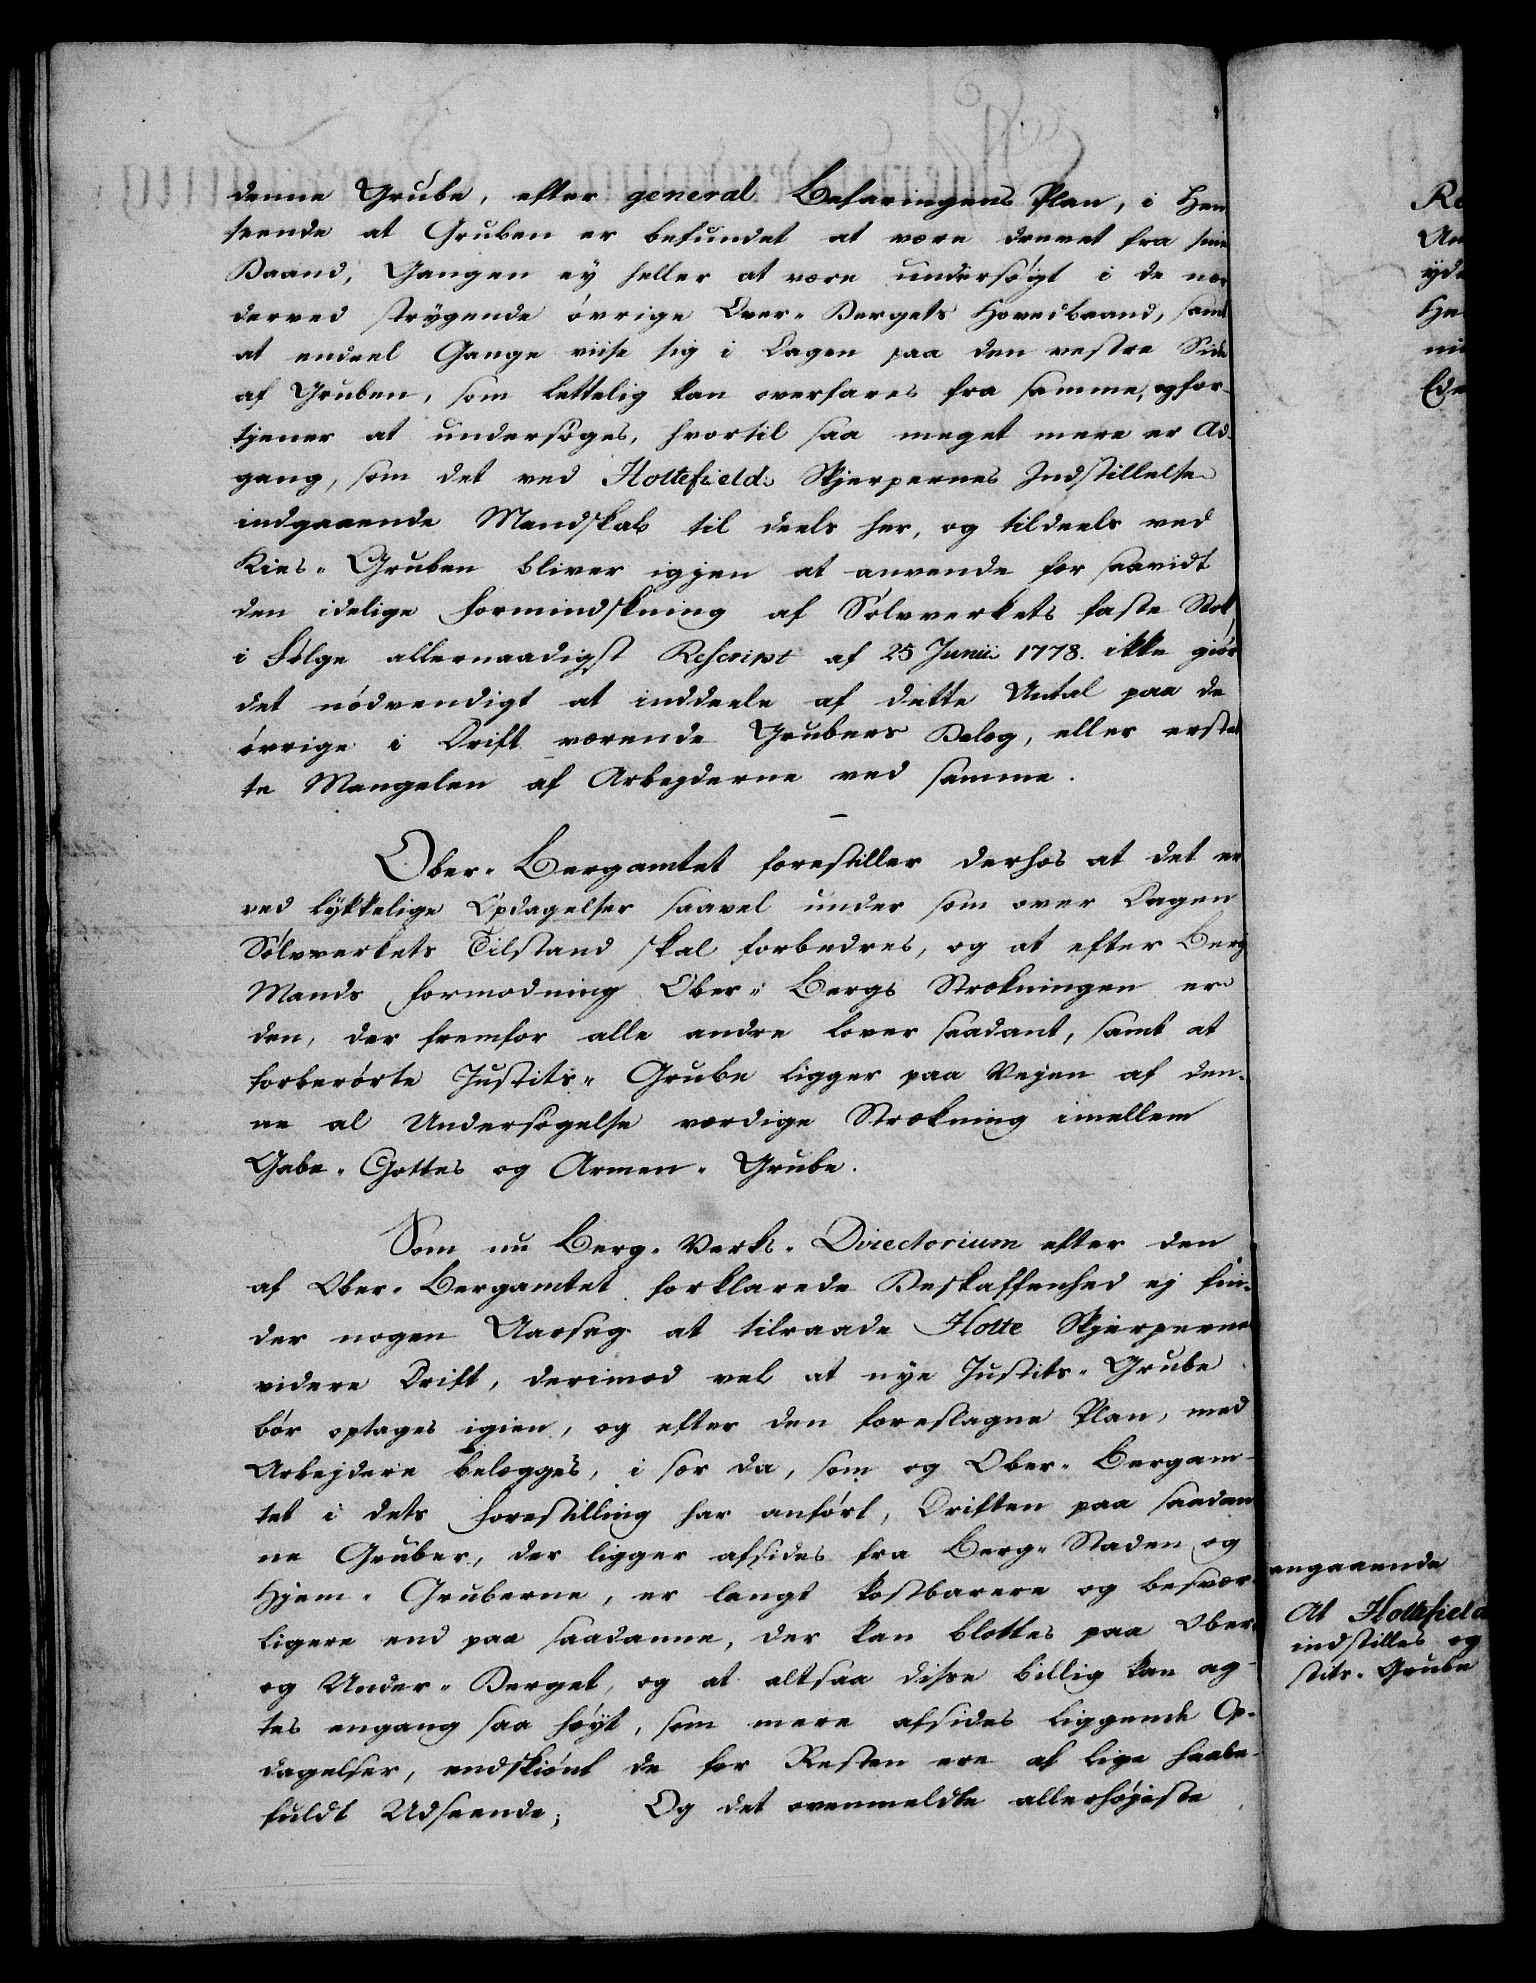 denne Grube, efter general Befaringens Plan, i Hen
seende at Gruben er befundet at være drevet fra sine
Baand, Gangen ey heller at være undersøgt i de nær
derved strygende øvrige Over-Bergets Hovedbaand, samt
at endeel Gange viise sig i Dagen paa den vestre Side
af Gruben, som lettelig kan overfares fra samme, og for-
tjener at undersøges, hvortil saa meget mere er Ad-
gang, som det ved Hottefields Skjerpernes Indstillelse
indgaaende Mandskab til deels her, og tildeels ved
Kies-Gruben bliver igjen at anvende for saavidt
den idelige Formindskning af Sølvverkets faste Stok,
i Følge allernaadigst Rescript af 25 Junii 1778. ikke giør
det nødvendigt at inddeele af dette Antal paa de
øvrige i Drift værende Grubers Belæg, eller erstat
te Mangelen af Arbejderne ved samme.
Ober-Bergamtet forestiller derhos at det er
ved lykkelige Opdagelser saavel under som over Dagen
Sølvverkets Tilstand skal forbedres, og at efter Berg
Mands Formodning Ober-Bergs Strækningen er
den, der fremfor alle andre lover saadant, samt at
forberørte Justits-Grube ligger paa Vejen af den-
ne al Undersøgelse værdige Strækning imellem
Gabe-Gottes og Armen-Grube.
Som nu Berg-Verks-Directorium efter den
af Ober-Bergamtet forklarede Beskaffenhed ej fin-
der nogen Aarsag at tilraade Hotte Skjerperne
videre Drift, derimod vel at nye Justits-Grube
bør optages igien, og efter den foreslagne Plan, med
Arbejdere belægges, i sær da, som og Ober-Bergam-
tet i dets Forestilling har anført, Driften paa saadan
ne Gruber, der ligger afsides fra Berg-Staden og
Hjem-Gruberne, er langt kostbarere og besvær-
ligere end paa saadanne, der kan blottes paa Ober-
og Under-Berget, og at altsaa disse billig kan ag-
tes engang saa høyt, som mere afsides liggende Op-
dagelser, endskiønt de for Resten ere af lige haabe-
fuldt Udseende; Og det ovenmeldte allerhøjeste
angaaende
At Hottefield
indstilles og
stits-Grube